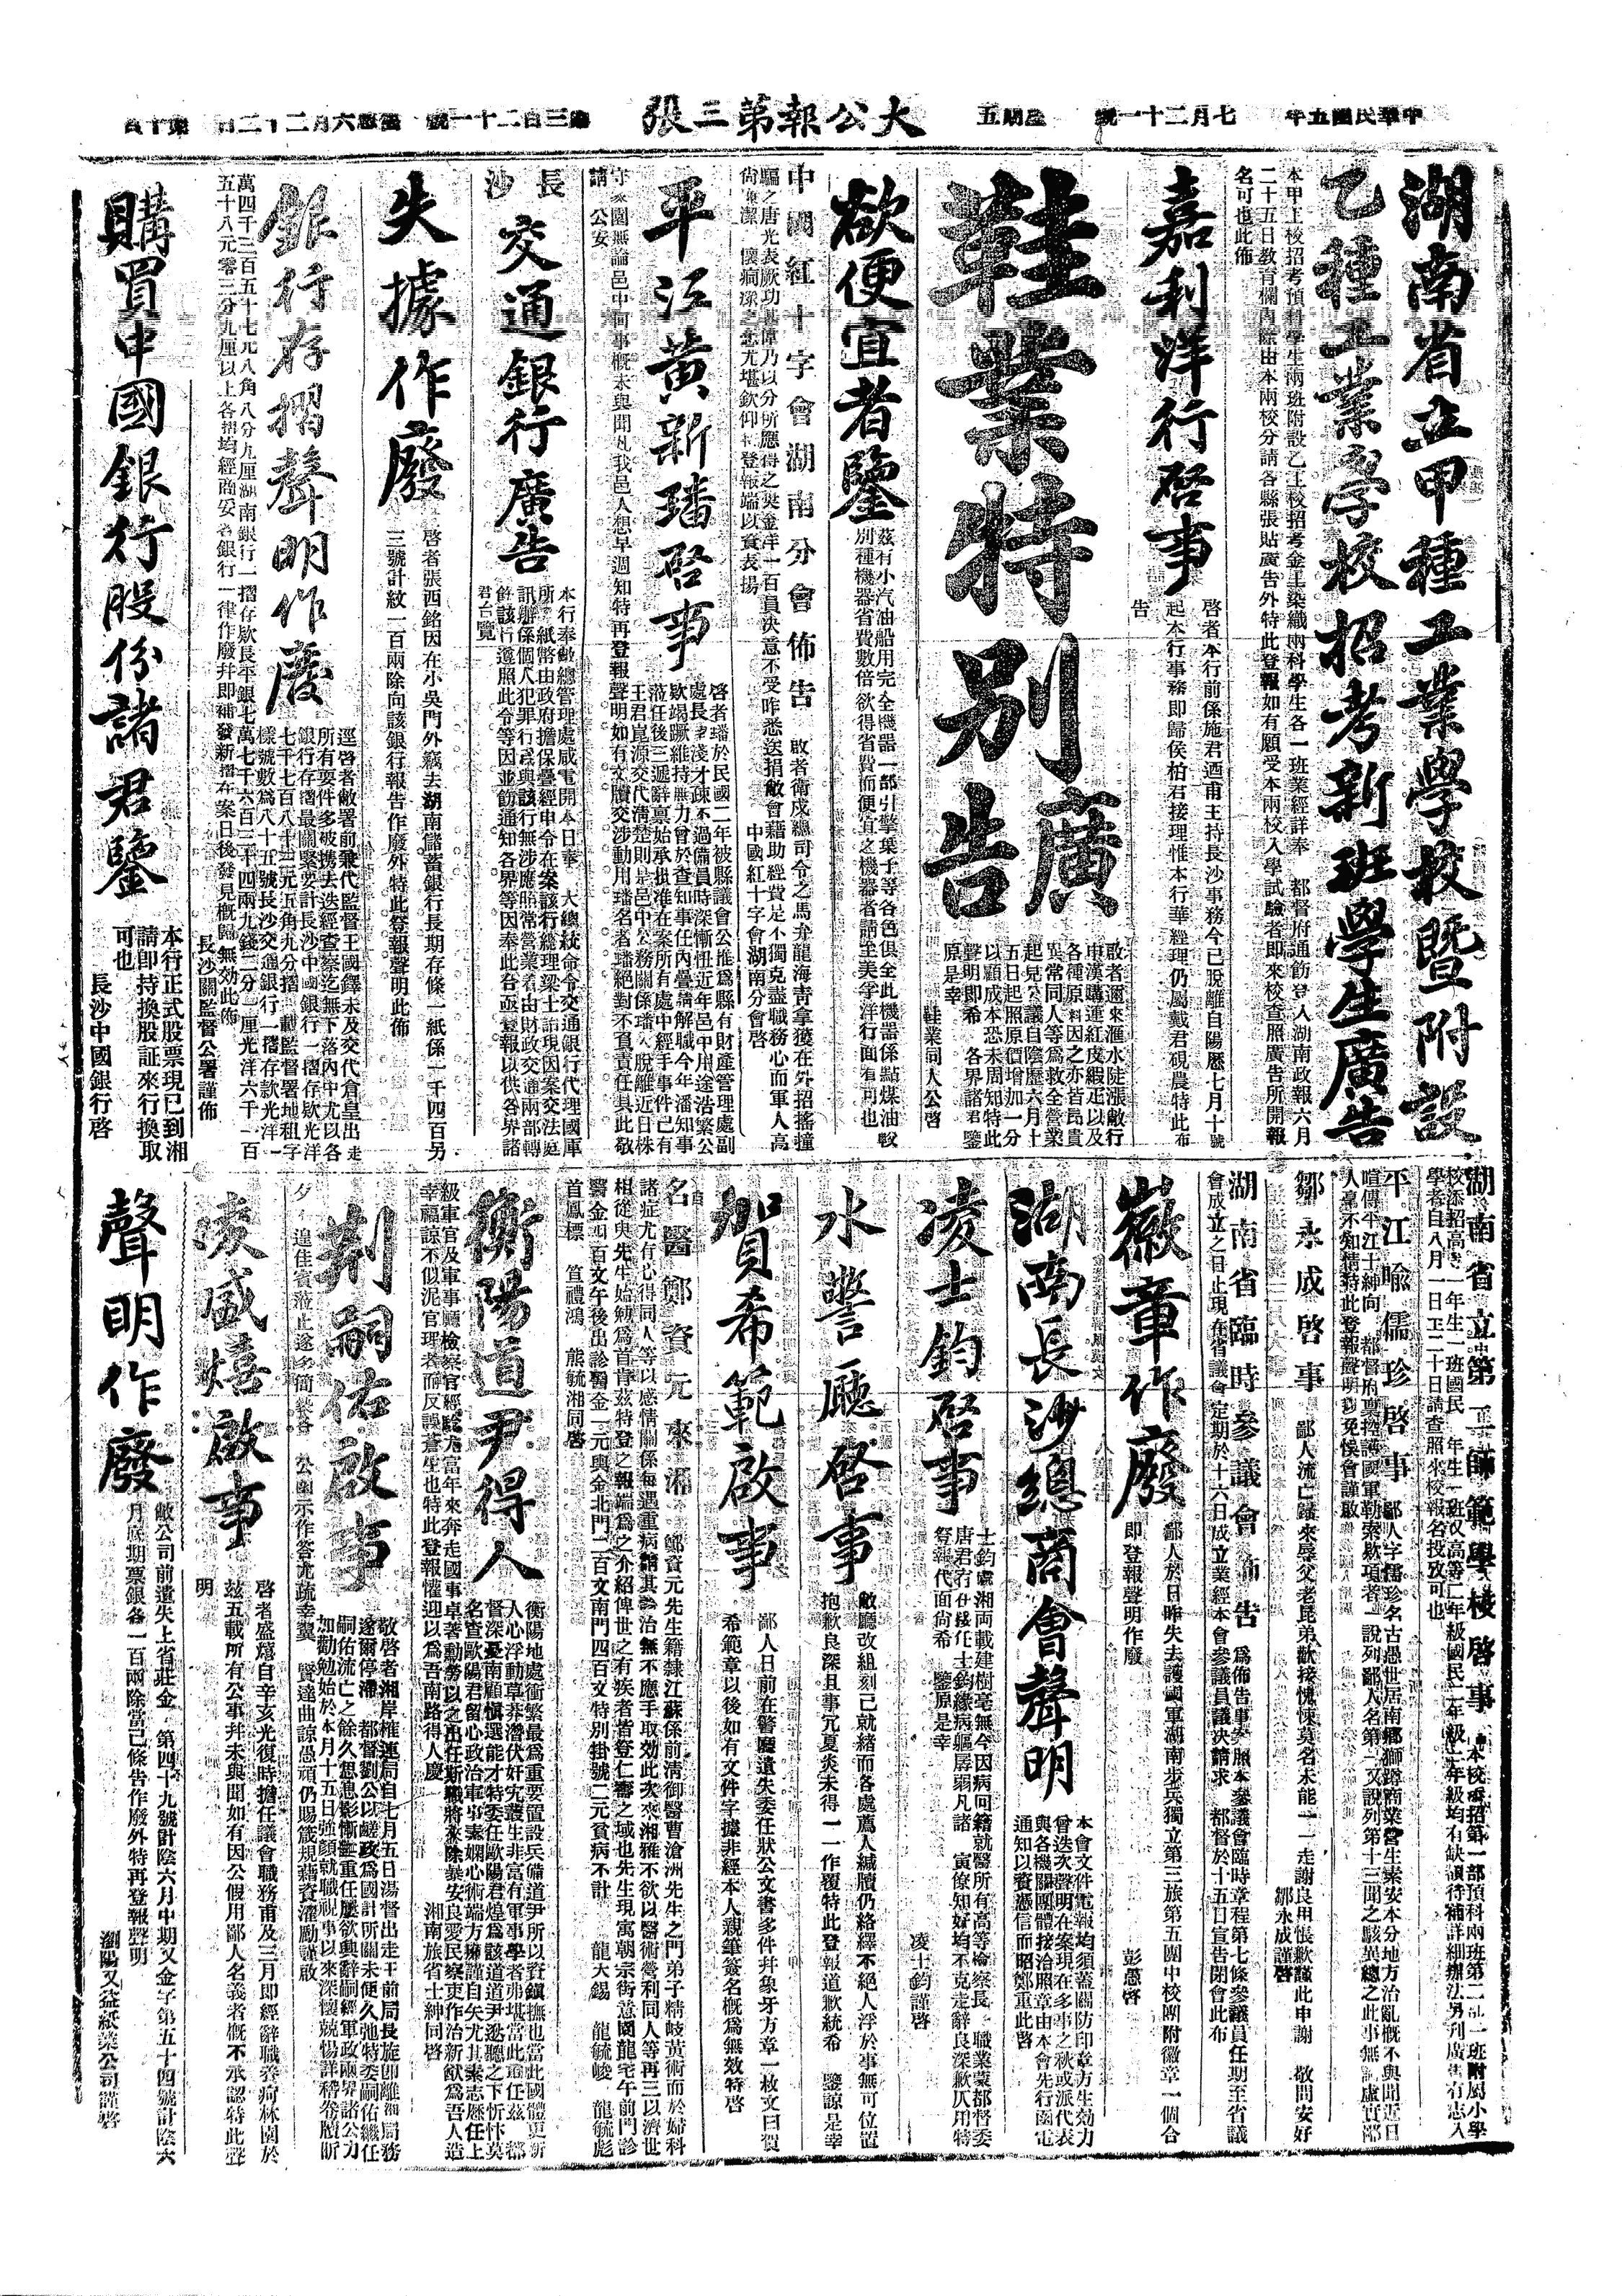 中華民國五年 七月二十一號 星期五
大公報第三張
第三百二十一號 舊歷六月二十二日 第十頁
湖南省立甲種工業學校暨附設
乙種工業學校招考新班學生廣告
本甲工校招考預科學生兩班附設乙工校招考金工染織兩科學生各一班業經詳奉 都督府通飭登入湖南政報六月
二十五日教育欄內除由本兩校分請各縣張貼廣告外特此登報如有願受本兩校入學試驗者即來校查照廣告所開報
名可也此佈
嘉利洋行啓事
啓者本行前係施君迺甫主持長沙事務今已脫離自陽歷七月十號
起本行事務即歸侯柏君接理惟本行華經理仍屬戴君硯農特此布
告
鞋業特別廣告
敢者邇來滙水陡漲敝行
申漢購運紅皮緞疋以及
各種原料因之亦皆昂貴
異常同人等爲救全營業
起見公議自陰歷六月十
五日起照原價增加一分
以顧成本恐未周知特此
聲明即希 各界諸君鑒
原是幸
鞋業同人公啓
欲便宜者鑒
茲有小汽油船用完全機器一部引擎葉子等各色俱全此機器係點煤油較
別種機器省費數倍欲得省費而便宜之機器者請至美孚洋行面看可也
中國紅十字會湖南分會佈告
敢者衛戍總司令之馬弁龍海青拿獲在外招搖撞
騙之唐光表厥功甚偉乃以分所應得之獎金洋一百員決意不受昨悉送捐敝會藉助經費足不獨克盡職務心而軍人高
尚廉潔 懷痌瘝之念尤堪欽仰特登報端以資表揚
中國紅十字會湖南分會啓
平江黃新璠啓事
啓者璠於民國二年被縣議會公推爲縣有財產管理處副
處長 淺才疎不過備員時深慚忸近年邑中用途浩繁公
欵竭蹶維持無力曾於查知事任內疊請解職今年潘知事
蒞任後三遞辭禀始承批准在案所有處中經手事件已有
王君崑源交代清楚則是邑中公務關係璠入脫離近日株
守家園無論邑中何事概未與聞凡我邑人想早週知特再登報聲明如有文牘交涉動用璠名者璠絕對不負責任具此敬
請 公安
長沙交通銀行廣告
本行奉敝總管理處咸電開本日奉 大總統命令交通銀行代理國庫
所 紙幣由政府擔保疊經申令在案該行總理梁士詒現因案交法庭
訊辦係個人犯罪行爲與該行無涉應照常營業着由財政交通兩部轉
飭該行遵照此令等因並飭通知各界等因奉此合亟登報以供各界諸
君台覽
失據作廢
啓者張西銘因在小吳門外竊去湖南儲蓄銀行長期存條一紙係一千四百另
三號計紋一百兩除向該銀行報告作廢外特此登報聲明此佈
銀行存摺聲明作廢
逕啓者敝署前兼代監督王國鐸未及交代倉皇出走
所有要件多被携去迭經查察迄無下落內中尤以各
銀行存摺最關緊要計長沙中國銀行一摺存欵光洋
七千七百八十三元五角九分一摺 載監督署地租字
樣號數爲八十五號長沙交通銀行一摺存款光洋一
萬四千三百五十七元八角八分九厘湖南銀行一摺存欵長平銀七萬七千六百三十四兩九錢二分一厘光洋六千一百
五十八元零三分九厘以上各摺均經商妥各銀行一律作廢并即補發新摺在案日後發見概歸無効此佈
長沙關監督公署謹佈
購買中國銀行股份諸君鑒
本行正式股票現已到湘
請卽持換股証來行換取
可也
長沙中國銀行啓
湖南省立第一師範學校啓事
本校添招第一部預科兩班第二部一班附屬小學
校添招高等一年生二班國民一年生一班又高等二年級國民二年級三年級均有缺額待補詳細辦法另刊廣告有志入
學者自八月一日至二十日請查照來校報名投攷可也
平江喻儒珍啓事
鄙人字儒珍名古愚世居南鄉獅蹲商業營生素安本分地方治亂概不與聞近日
喧傳平江士紳向 都督府禀控護國軍勒索欵項者一說列鄙人名第一又說列第十三聞之駭異總之此事無 虛實鄙
人毫不知情特此登報聲明以免悞會謹啟
鄒永成啓事
鄙人流亡歸來辱父老昆弟歡接愧悚莫名未能一一走謝良用悵歉謹此申謝 敬問安好
鄒永成謹啓
湖南省臨時參議會佈告
爲佈告事案照本參議會臨時章程第七條參議員任期至省議
會成立之日止現在省議會定期於十六日成立業經本會參議員議決請求 都督於十五日宣告閉會此布
徽章作廢
鄙人於日昨失去護國軍湖南步兵獨立第三旅第五團中校團附徽章一個合
即登報聲明作廢
彭憲啓
湖南長沙總商會聲明
本會文件電報均須蓋關防印章方生効力
曾迭次聲明在案現在多事之秋或派代表
與各機關團體接洽照章由本會先行函電
通知以資憑信而昭鄭重此啓
凌士鈞啓事
士鈞處湘兩載建樹毫無今因病回籍就醫所有高等檢察長一職業蒙都督委
唐君右 接任士鈞緣病軀孱弱凡諸 寅僚知好均不克走辭良深歉仄用特
登報代面尚希 鑒原是幸
凌士鈞謹啓
水警廳啓事
敝廳改組刻已就緒而各處薦人緘牘仍絡繹不絕人浮於事無可位置
抱歉良深且事冗夏炎未得一一作覆特此登報道歉統希 鑒諒是幸
賀希範啟事
鄙人日前在警廳遺失委任狀公文書多件幷象牙方章一枚文曰賀
希範章以後如有文件字據非經本人親筆簽名概爲無效特啓
名醫鄭資元來湘
鄭資元先生籍隸江蘇係前清御醫曹滄洲先生之門弟子精岐黃術而於婦科
諸症尤有心得同人等以感情關係每遇重病請其診治無不應手取効此次來湘雅不欲以醫術營利同人等再三以濟世
相從與先生始勉爲首肯茲特登之報端爲之介紹俾世之有疾者皆登仁壽之域也先生現寓朝宗街意園龍宅午前門診
醫金四百文午後出診醫金一元輿金北門二百文南門四百文特別掛號二元貧病不計 龍大錫 龍毓峻 龍毓彪
首鳳標 笪禮鴻 熊毓湘同啓
衡陽道尹得人
衡陽地處衝繁最爲重要置設兵備道尹所以資鎮撫也當此國體更新
人心浮動草莽潛伏奸宄護生非富有軍事學者弗堪當此重任茲 都
督深憂南顧慎選能才特委任歐陽君煌爲該道道尹逖聽之下忻忭莫
名查歐陽君留心政治軍事素嫻心術端方廉謹自矢尤其素志歷任上
級軍官及軍事廳檢察官經驗尤富年來奔走國事卓著勤勞以之出任斯職將來除暴安良愛民察吏作治新猷爲吾人造
幸福諒不似泥官理者而反誤蒼生也特此登報懽迎以爲吾南路得人慶
湘南旅省士紳同啓
荆嗣佑啟事
敬啓者湘岸榷運局自七月五日湯督出走王前局長旋卽離湘局務
遂爾停滯 都督劉公以鹺政爲國計所關未便久弛特委嗣佑繼任
嗣佑流亡之餘久想息影慚 重任屢欲輿辭嗣經軍政兩界諸公力
加勸勉始於本月十五日强顏就職視事以來深懷兢惕詳稽卷牘晰
夕 遑佳賓蒞止遂多簡褻各 公函示作答尤疏幸冀 賢達曲諒愚頑仍賜箴規藉資濯勵謹啟
凌盛熺啟事
啓者盛熺自辛亥光復時擔任議會職務甫及三月即經辭職養疴林園於
茲五載所有公事幷未與聞如有因公假用鄙人名義者概不承認特此聲
明
聲明作廢
敝公司前遺失上省莊金 第四十九號計陰六月中期又金字第五十四號計陰六
月底期票銀各一百兩除當已條告作廢外特再登報聲明
瀏陽又益紙業公司謹啓